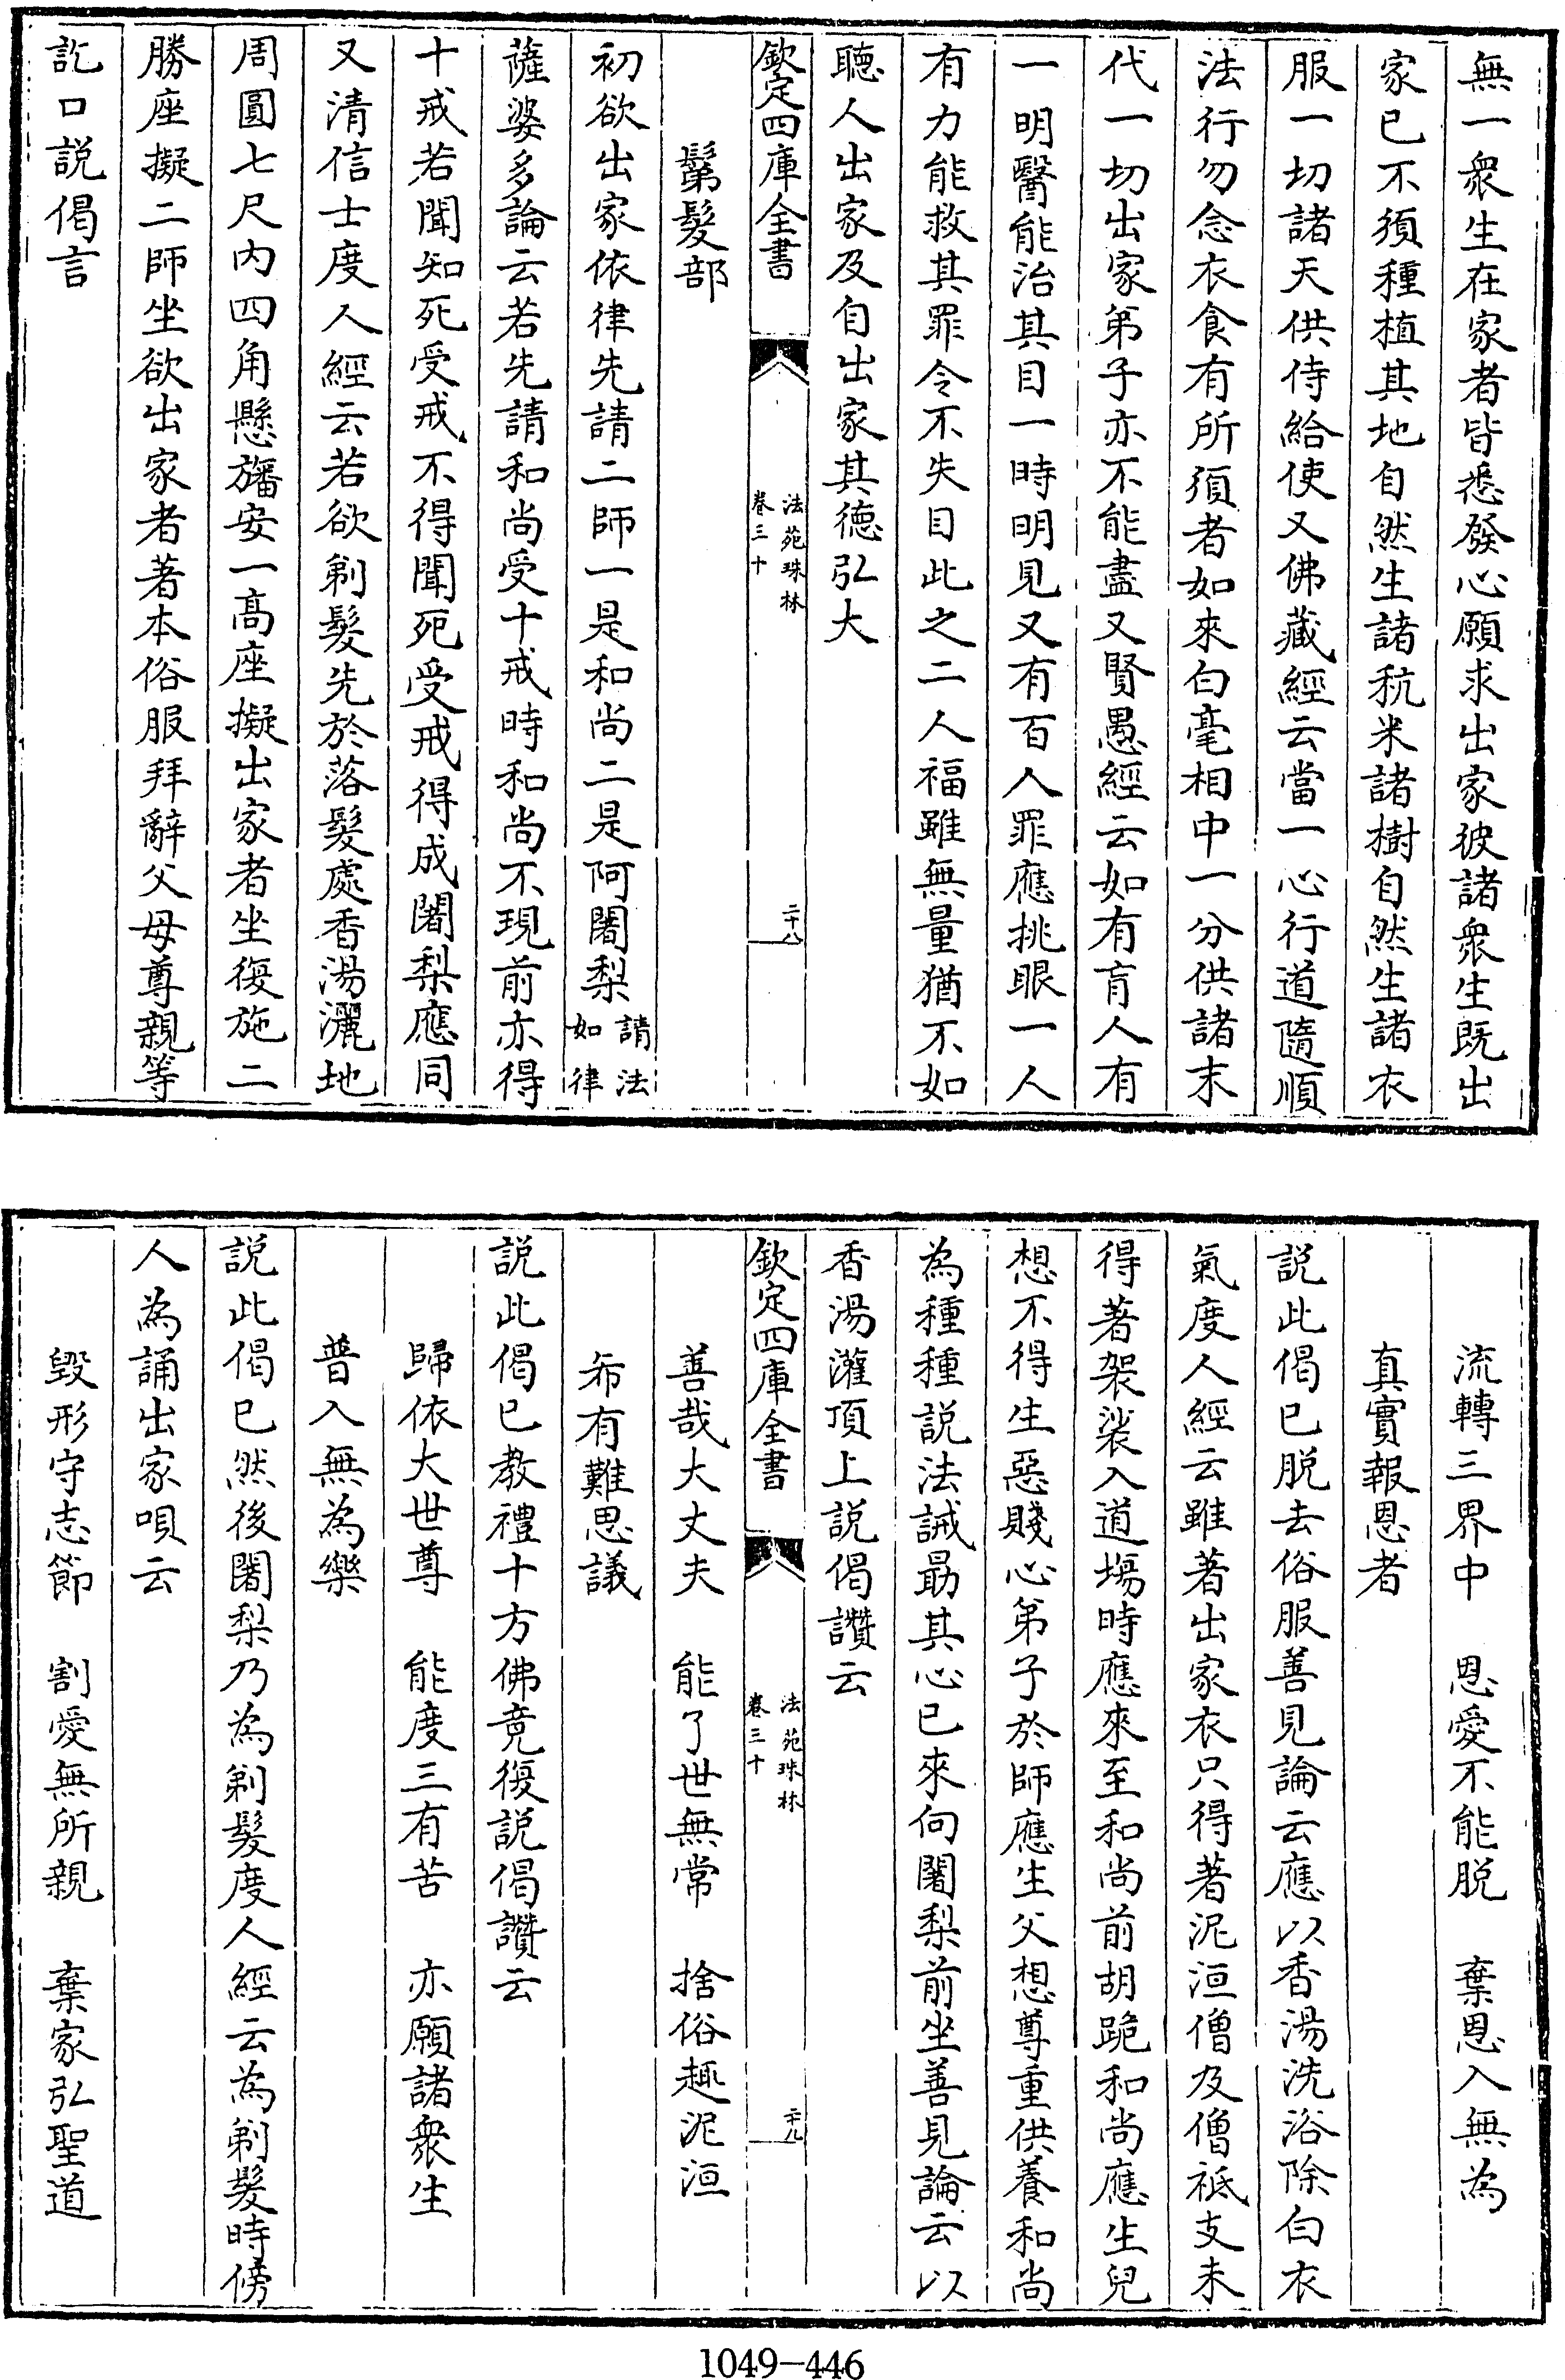 無一衆生在家者皆悉發心願求出家彼諸衆生既出
家已不須種植其地自然生諸秔米諸樹自然生諸衣
服一切諸天供侍給使又佛藏經云當一心行道隨順
法行勿念衣食有所須者如來白毫相中一分供諸末
代一切出家弟子亦不能盡又賢愚經云如有肓人有
一明醫能治其目一時明見又有百人罪應挑眼一人
有力能救其罪令不失目此之二人福雖無量猶不如
聽人出家及自出家其德弘大
欽定四庫全書
法苑珠林
卷三十
二十八
鬀髮部
初欲出家依律先請二師一是和尚二是阿闍梨請法如律
薩婆多論云若先請和尚受十戒時和尚不現前亦得
十戒若聞知死受戒不得聞死受戒得成闍梨應同
又清信士度人經云若欲剃髮先於落髮處香湯灑地
周圓七尺内四角懸旛安一高座擬出家者坐復施二
勝座擬二師坐欲出家者著本俗服拜辭父母尊親等
訖口説偈言
流轉三界中　恩愛不能脱　棄恩入無為
真實報恩者
説此偈已脱去俗服善見論云應以香湯洗浴除白衣
氣度人經云雖著出家衣只得著泥洹僧及僧祗支未
得著袈裟入道場時應來至和尚前胡跪和尚應生兒
想不得生惡賤心弟子於師應生父想尊重供養和尚
為種種説法誡勗其心已來向闍梨前坐善見論云以
香湯灌頂上説偈讚云
欽定四庫全書
法苑珠林
卷三十
二十九
善哉大丈夫　能了世無常　捨俗趣泥洹
希有難思議
説此偈已教禮十方佛竟復説偈讚云
歸依大世尊　能度三有苦　亦願諸衆生
普入無為樂
説此偈已然後闍梨乃為剃髮度人經云為剃髮時傍
人為誦出家唄云
毀形守志節　割愛無所親　棄家弘聖道
1049-446